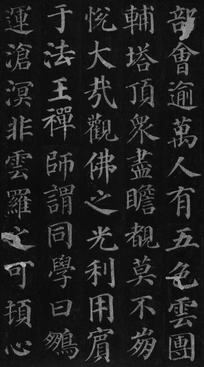 部會逾萬人有五色雲團
輔塔頂衆盡瞻覩莫不夠
悅大㢤觀佛之光利用賓
于法王禪師謂同學曰鵽
運滄溟非雲羅之可頓心